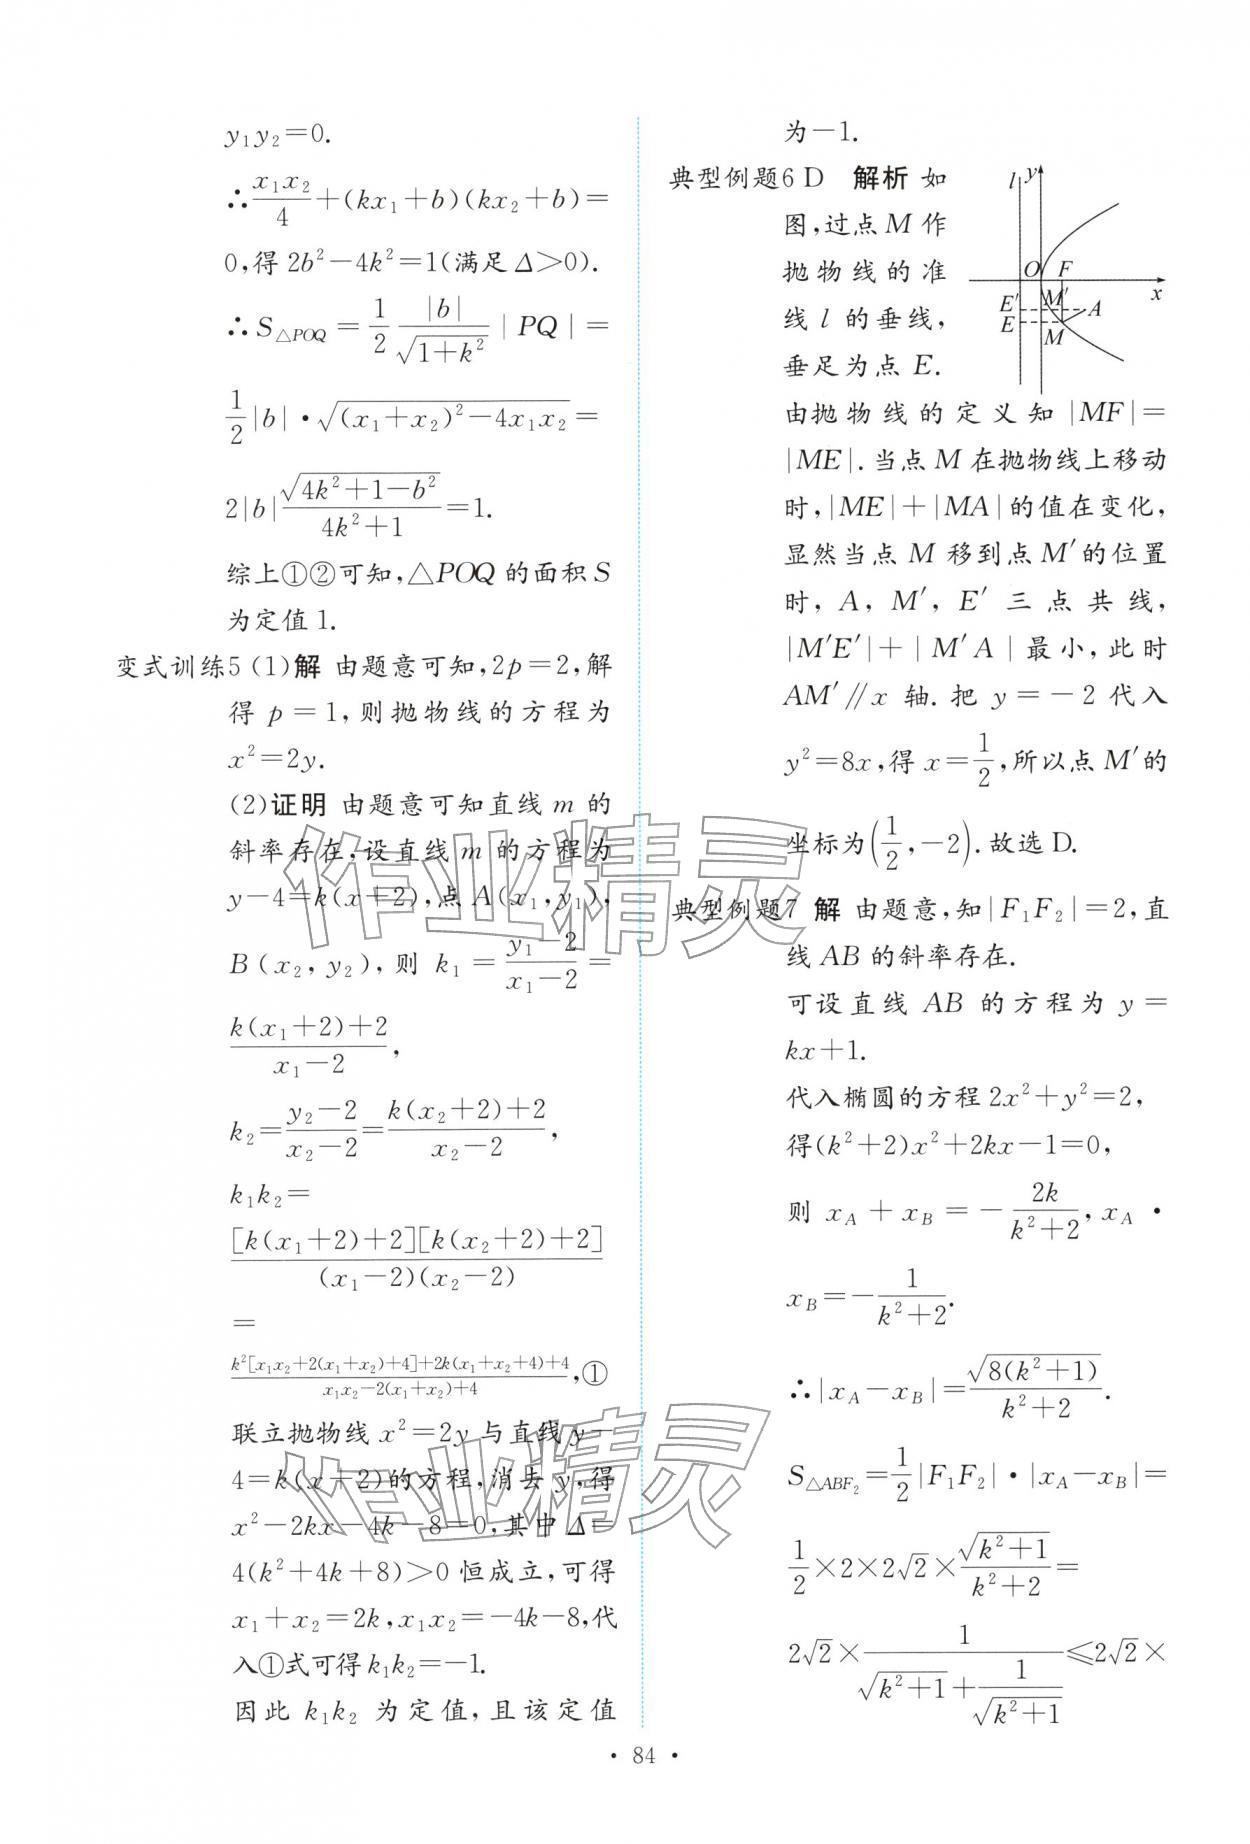 y₁y₂=0.
∴x₁x₂/4+(kx₁+b)(kx₂+b)=
0,得2b²-4k²=1(满足Δ>0).
∴S△POQ=1/2 |b|/√(1+k²) |PQ|=
1/2|b|·√((x₁+x₂)²-4x₁x₂)=
2|b|√(4k²+1-b²)/(4k²+1)=1.
综上①②可知,△POQ的面积S
为定值1.
变式训练5 (1)解 由题意可知,2p=2,解
得p=1,则抛物线的方程为
x²=2y.
(2)证明 由题意可知直线m的
斜率存在,设直线m的方程为
y-4=k(x+2),点A(x₁,y₁),
B(x₂,y₂),则k₁=(y₁-2)/(x₁-2)=
(k(x₁+2)+2)/(x₁-2),
k₂=(y₂-2)/(x₂-2)=(k(x₂+2)+2)/(x₂-2),
k₁k₂=
[k(x₁+2)+2][k(x₂+2)+2]/((x₁-2)(x₂-2))
=
(k²[x₁x₂+2(x₁+x₂)+4]+2k(x₁+x₂+4)+4)/(x₁x₂-2(x₁+x₂)+4),①
联立抛物线x²=2y与直线y-
4=k(x+2)的方程,消去y,得
x²-2kx-4k-8=0,其中Δ=
4(k²+4k+8)>0恒成立,可得
x₁+x₂=2k,x₁x₂=-4k-8,代
入①式可得k₁k₂=-1.
因此k₁k₂为定值,且该定值
为-1.
典型例题6 D 解析 如
图,过点M作
抛物线的准
线l的垂线,
垂足为点E.
l y
O F
x
E′ M′ A
E M
由抛物线的定义知|MF|=
|ME|.当点M在抛物线上移动
时,|ME|+|MA|的值在变化,
显然当点M移到点M′的位置
时,A,M′,E′三点共线,
|M′E′|+|M′A|最小,此时
AM′∥x轴.把y=-2代入
y²=8x,得x=1/2,所以点M′的
坐标为(1/2,-2).故选D.
典型例题7 解 由题意,知|F₁F₂|=2,直
线AB的斜率存在.
可设直线AB的方程为y=
kx+1.
代入椭圆的方程2x²+y²=2,
得(k²+2)x²+2kx-1=0,
则x_A+x_B=-2k/(k²+2),x_A·
x_B=-1/(k²+2).
∴|x_A-x_B|=√(8(k²+1))/(k²+2).
S△ABF₂=1/2|F₁F₂|·|x_A-x_B|=
1/2×2×2√2×√(k²+1)/(k²+2)=
2√2×1/(√(k²+1)+1/√(k²+1))≤2√2×
作业精灵
作业精灵
·84·